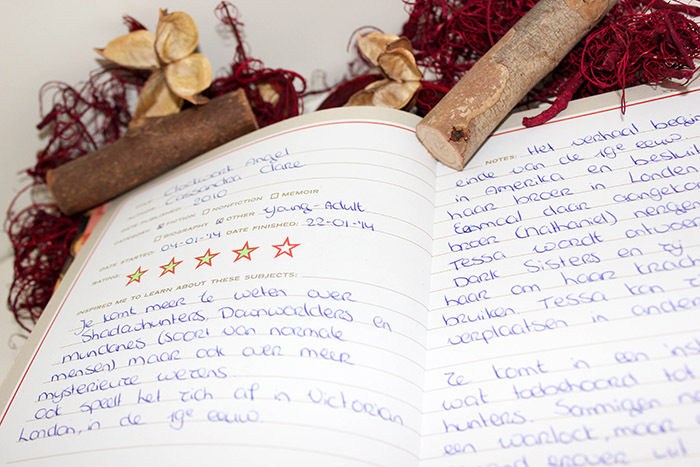 Clockwork Angel
Cassandra Clare
DATE PUBLISHED: 2010
CATEGORY: FICTION NONFICTION MEMOIR
BIOGRAPHY OTHER Young-Adult
DATE STARTED: 04-01-'14 DATE FINISHED: 22-01-'14
RATING:
INSPIRED ME TO LEARN ABOUT THESE SUBJECTS:
Je komt meer te weten over
Shadowhunters, Downworlders en
mundanes (soort van normale
mensen) maar ook over meer
mysterieuze wezens.
Ook speelt het zich af in Victorian
London, in de 19e eeuw.
NOTES: Het verhaal begin
einde van de 19e eeuw
in Amerika en besluit
haar broer in Londen
Eenmaal daar aangekom
broer (Nathaniel) nergens
Tessa wordt
Dark Sisters en zij
haar om haar krach
bruiken. Tessa kan
verplaatsen in ander
Ze komt in een inst
wat toebehoord tot
hunters. Sommigen
een warlock, maar